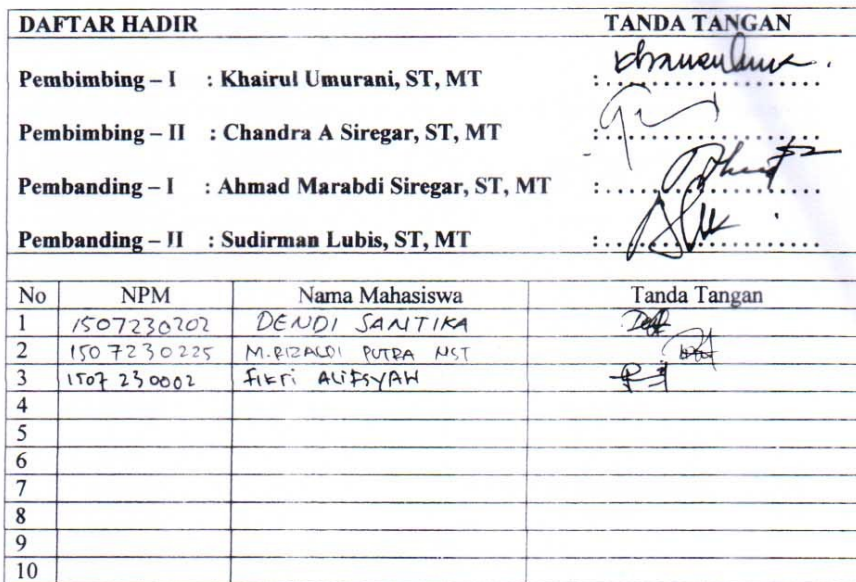 DAFTAR HADIR TANDA TANGAN
Pembimbing – I : Khairul Umurani, ST, MT :....................
Pembimbing – II : Chandra A Siregar, ST, MT :....................
Pembanding – I : Ahmad Marabdi Siregar, ST, MT :....................
Pembanding – II : Sudirman Lubis, ST, MT :....................
No NPM Nama Mahasiswa Tanda Tangan
1 1507230202 DENDI SANTIKA
2 1507230225 M.RIZALDI PUTRA NST
3 1507230002 FIKri ALIFSYAH
4
5
6
7
8
9
10